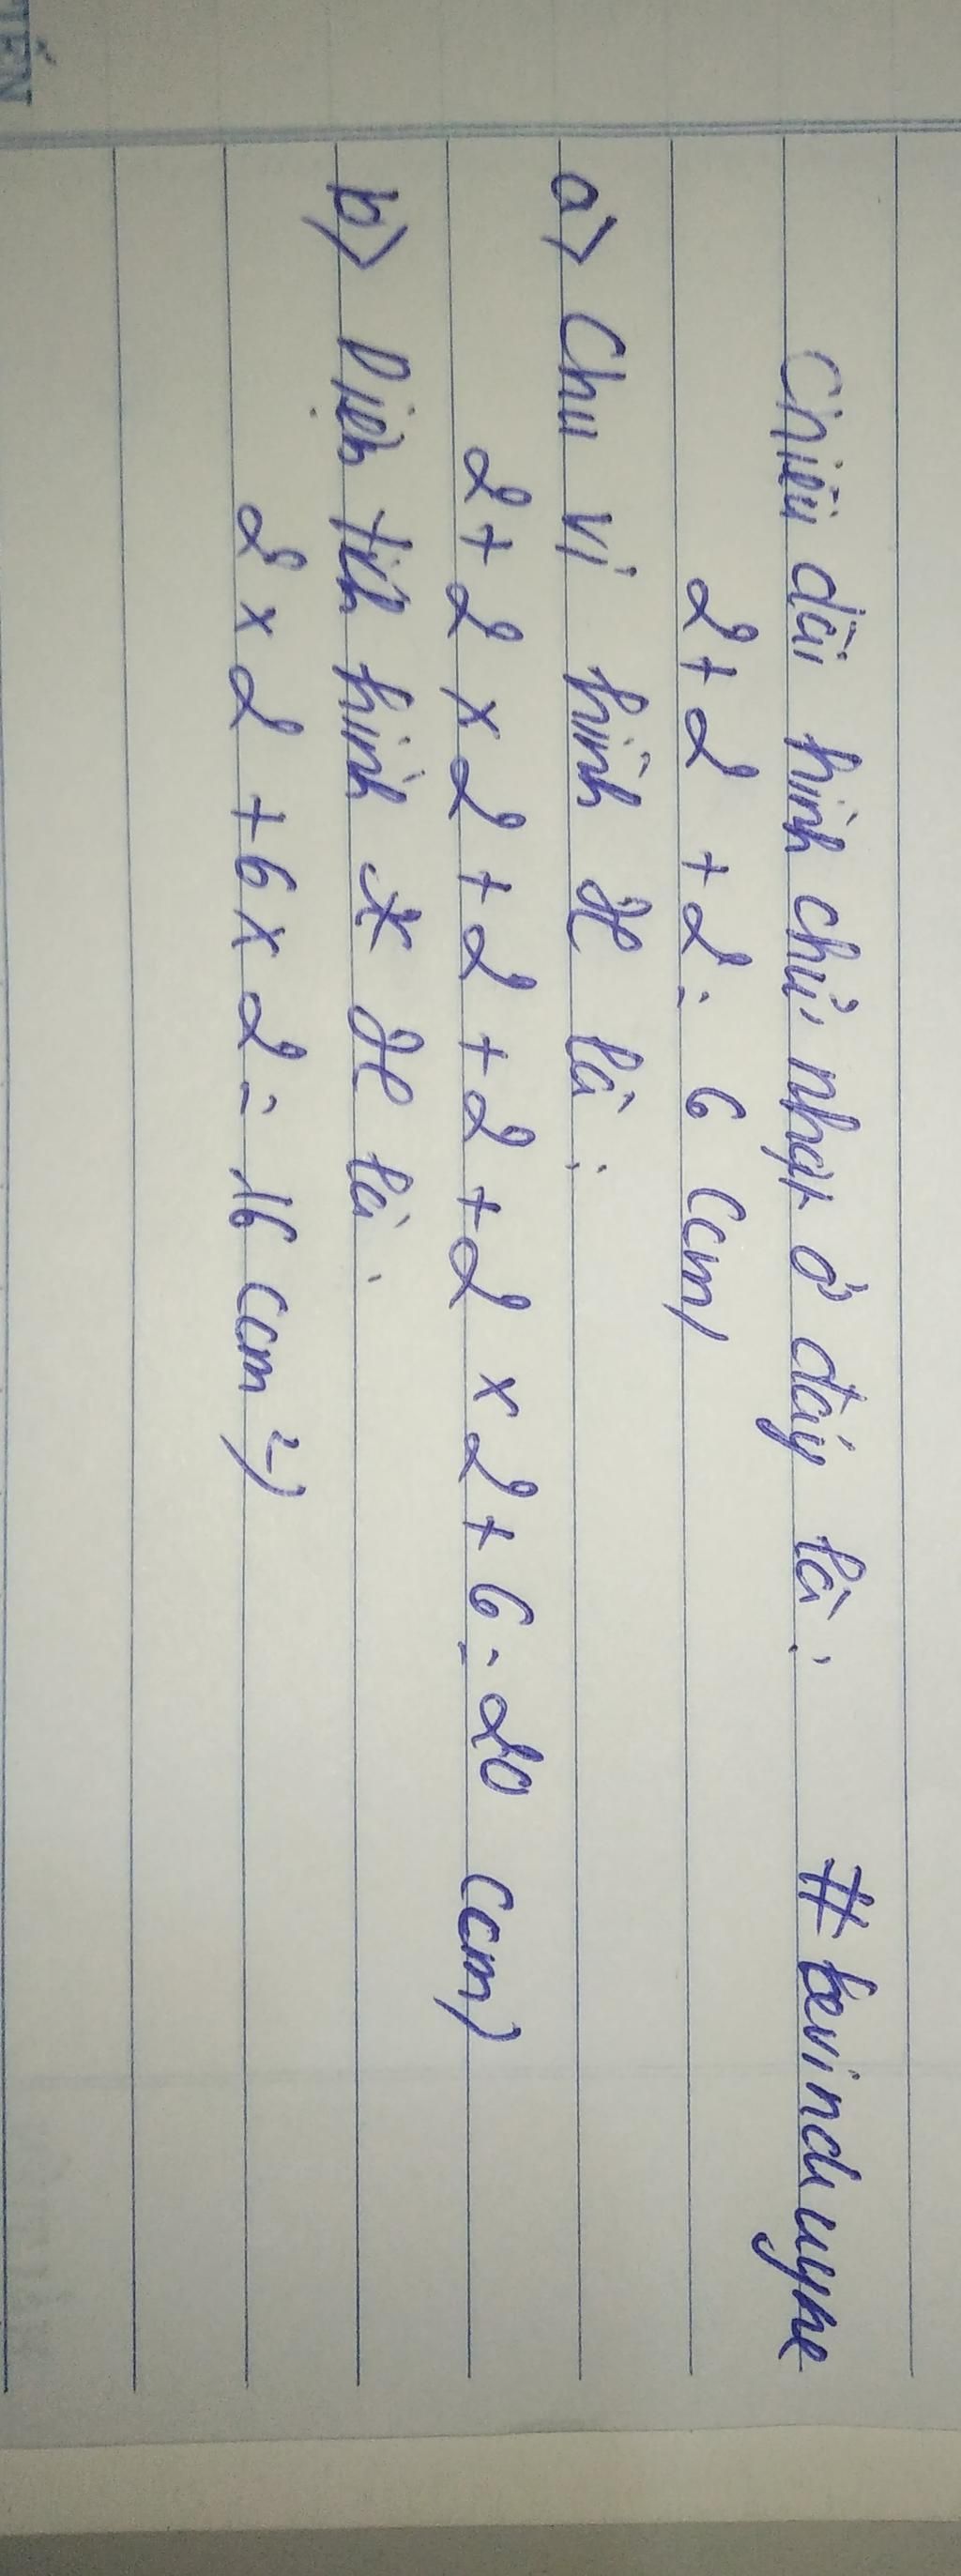 Chiều dài hình chữ nhật ở đáy là: #bevinduyne
2+2+2= 6 (cm)
a) Chu vi hình H là:
2+2x2+2+2+2x2+6=20 (cm)
b) Diện tích hình H là:
2x2+6x2=16 (cm²)
TẾN